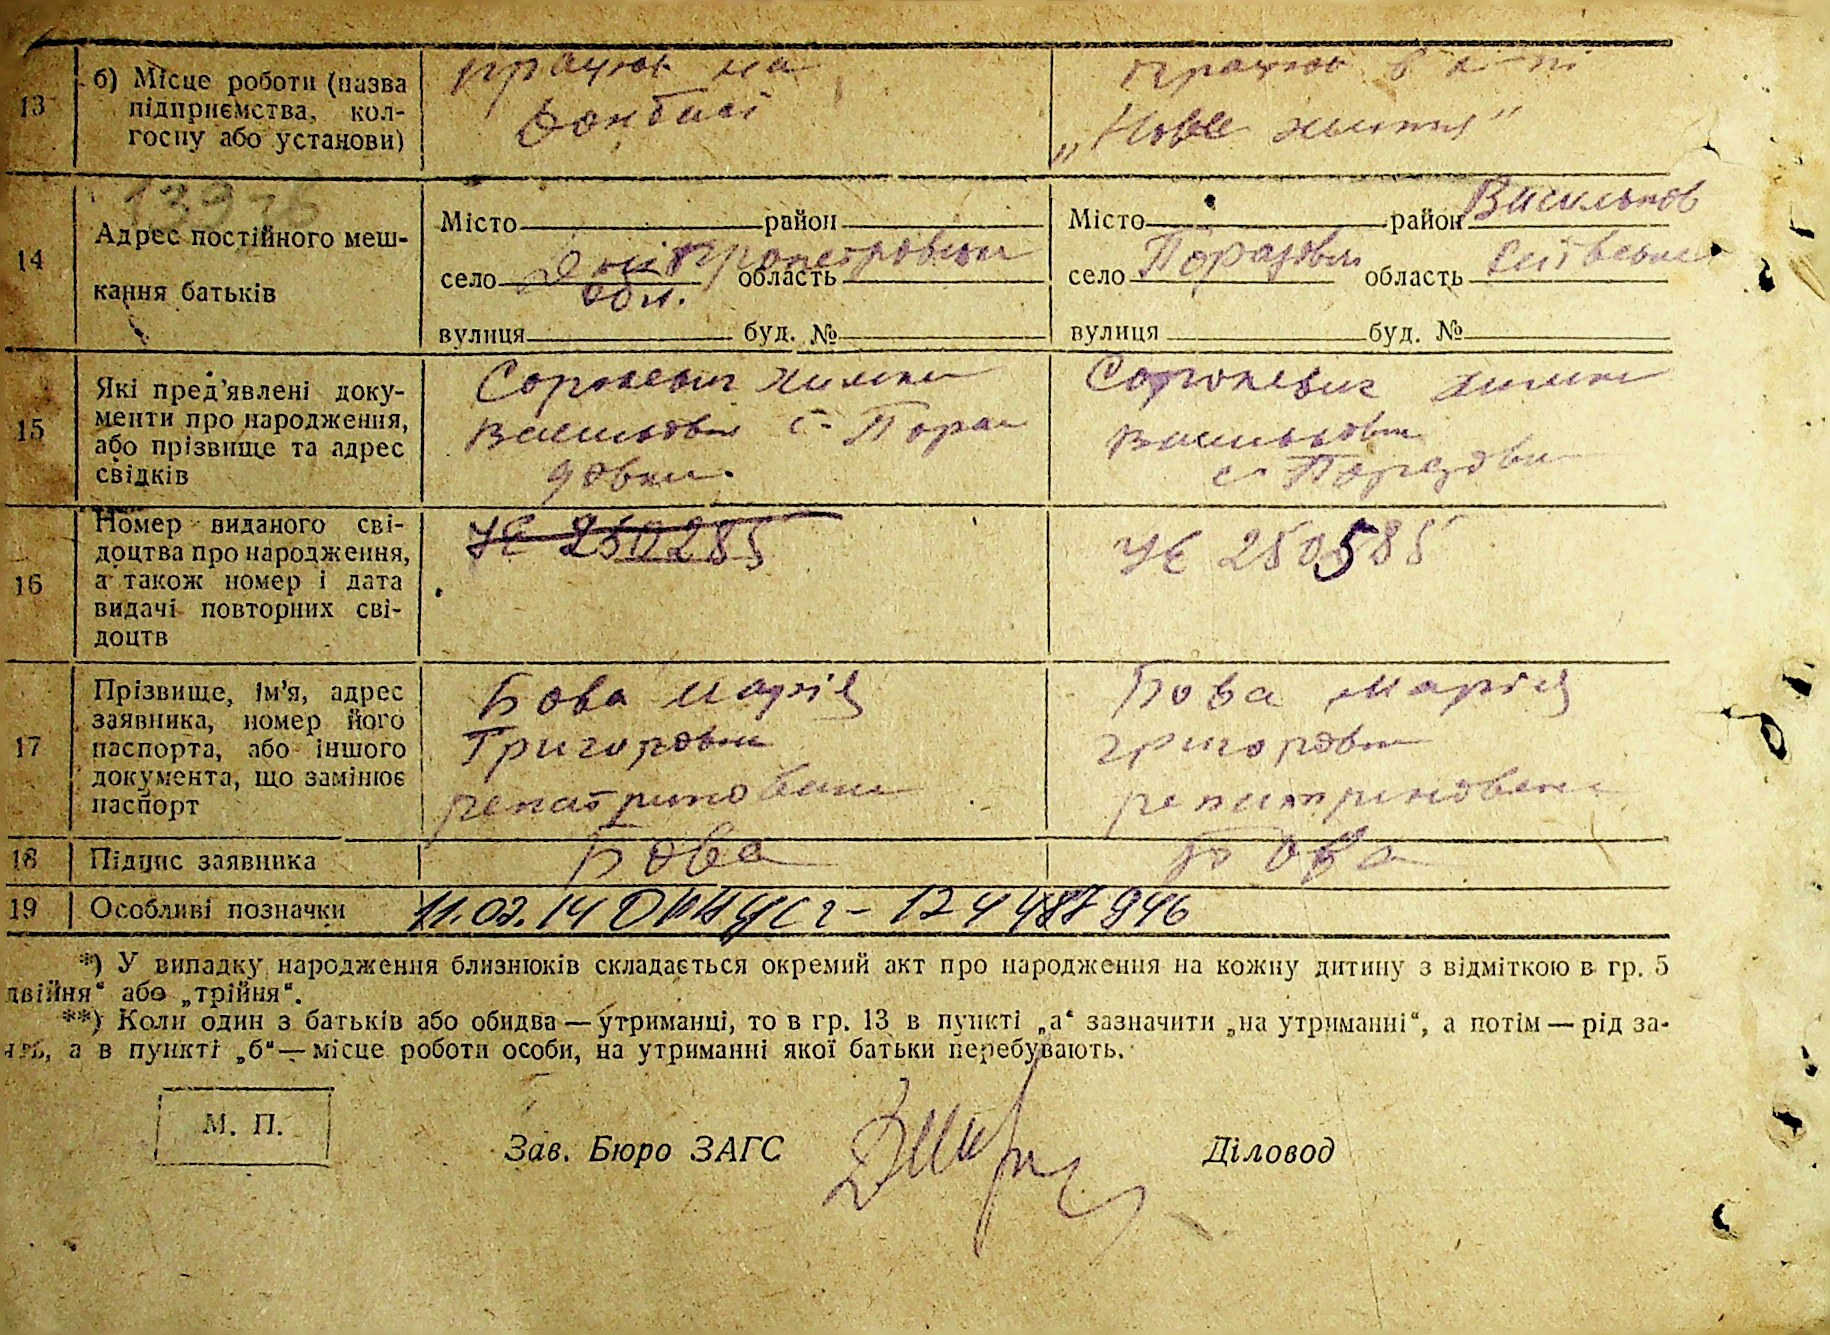 13
б) Місце роботи (назва
підприємства, кол-
госпу або установи)
працює на
Донбасі
працює в к-пі
„Нове життя"
13976
14
Адрес постійного меш-
кання батьків
Місто район
село область
Дніпропетровськ
обл.
вулиця буд. №
Місто район Васильків
село Порадовка область Київськ
вулиця буд. №
15
Які пред'явлені доку-
менти про народження,
або прізвище та адрес
свідків
с. Пора
довка.
с. Порадовка
16
Номер виданого сві-
доцтва про народження,
а також номер і дата
видачі повторних сві-
доцтв
УЄ 250285
УЄ 250585
17
Прізвище, ім'я, адрес
заявника, номер його
паспорта, або іншого
документа, що замінює
паспорт
Бова Марія
Григоровна
репатриована
Бова Марія
Григоровна
репатриована
18 Підпис заявника Бова Бова
19 Особливі позначки 11.02.14
*) У випадку народження близнюків складається окремий акт про народження на кожну дитину з відміткою в гр. 5
двійня“ або „трійня“.
**) Коли один з батьків або обидва — утриманці, то в гр. 13 в пункті „а“ зазначити „на утриманні“, а потім — рід за-
нять, а в пункті „б“ — місце роботи особи, на утриманні якої батьки перебувають.
М. П.
Зав. Бюро ЗАГС
Діловод